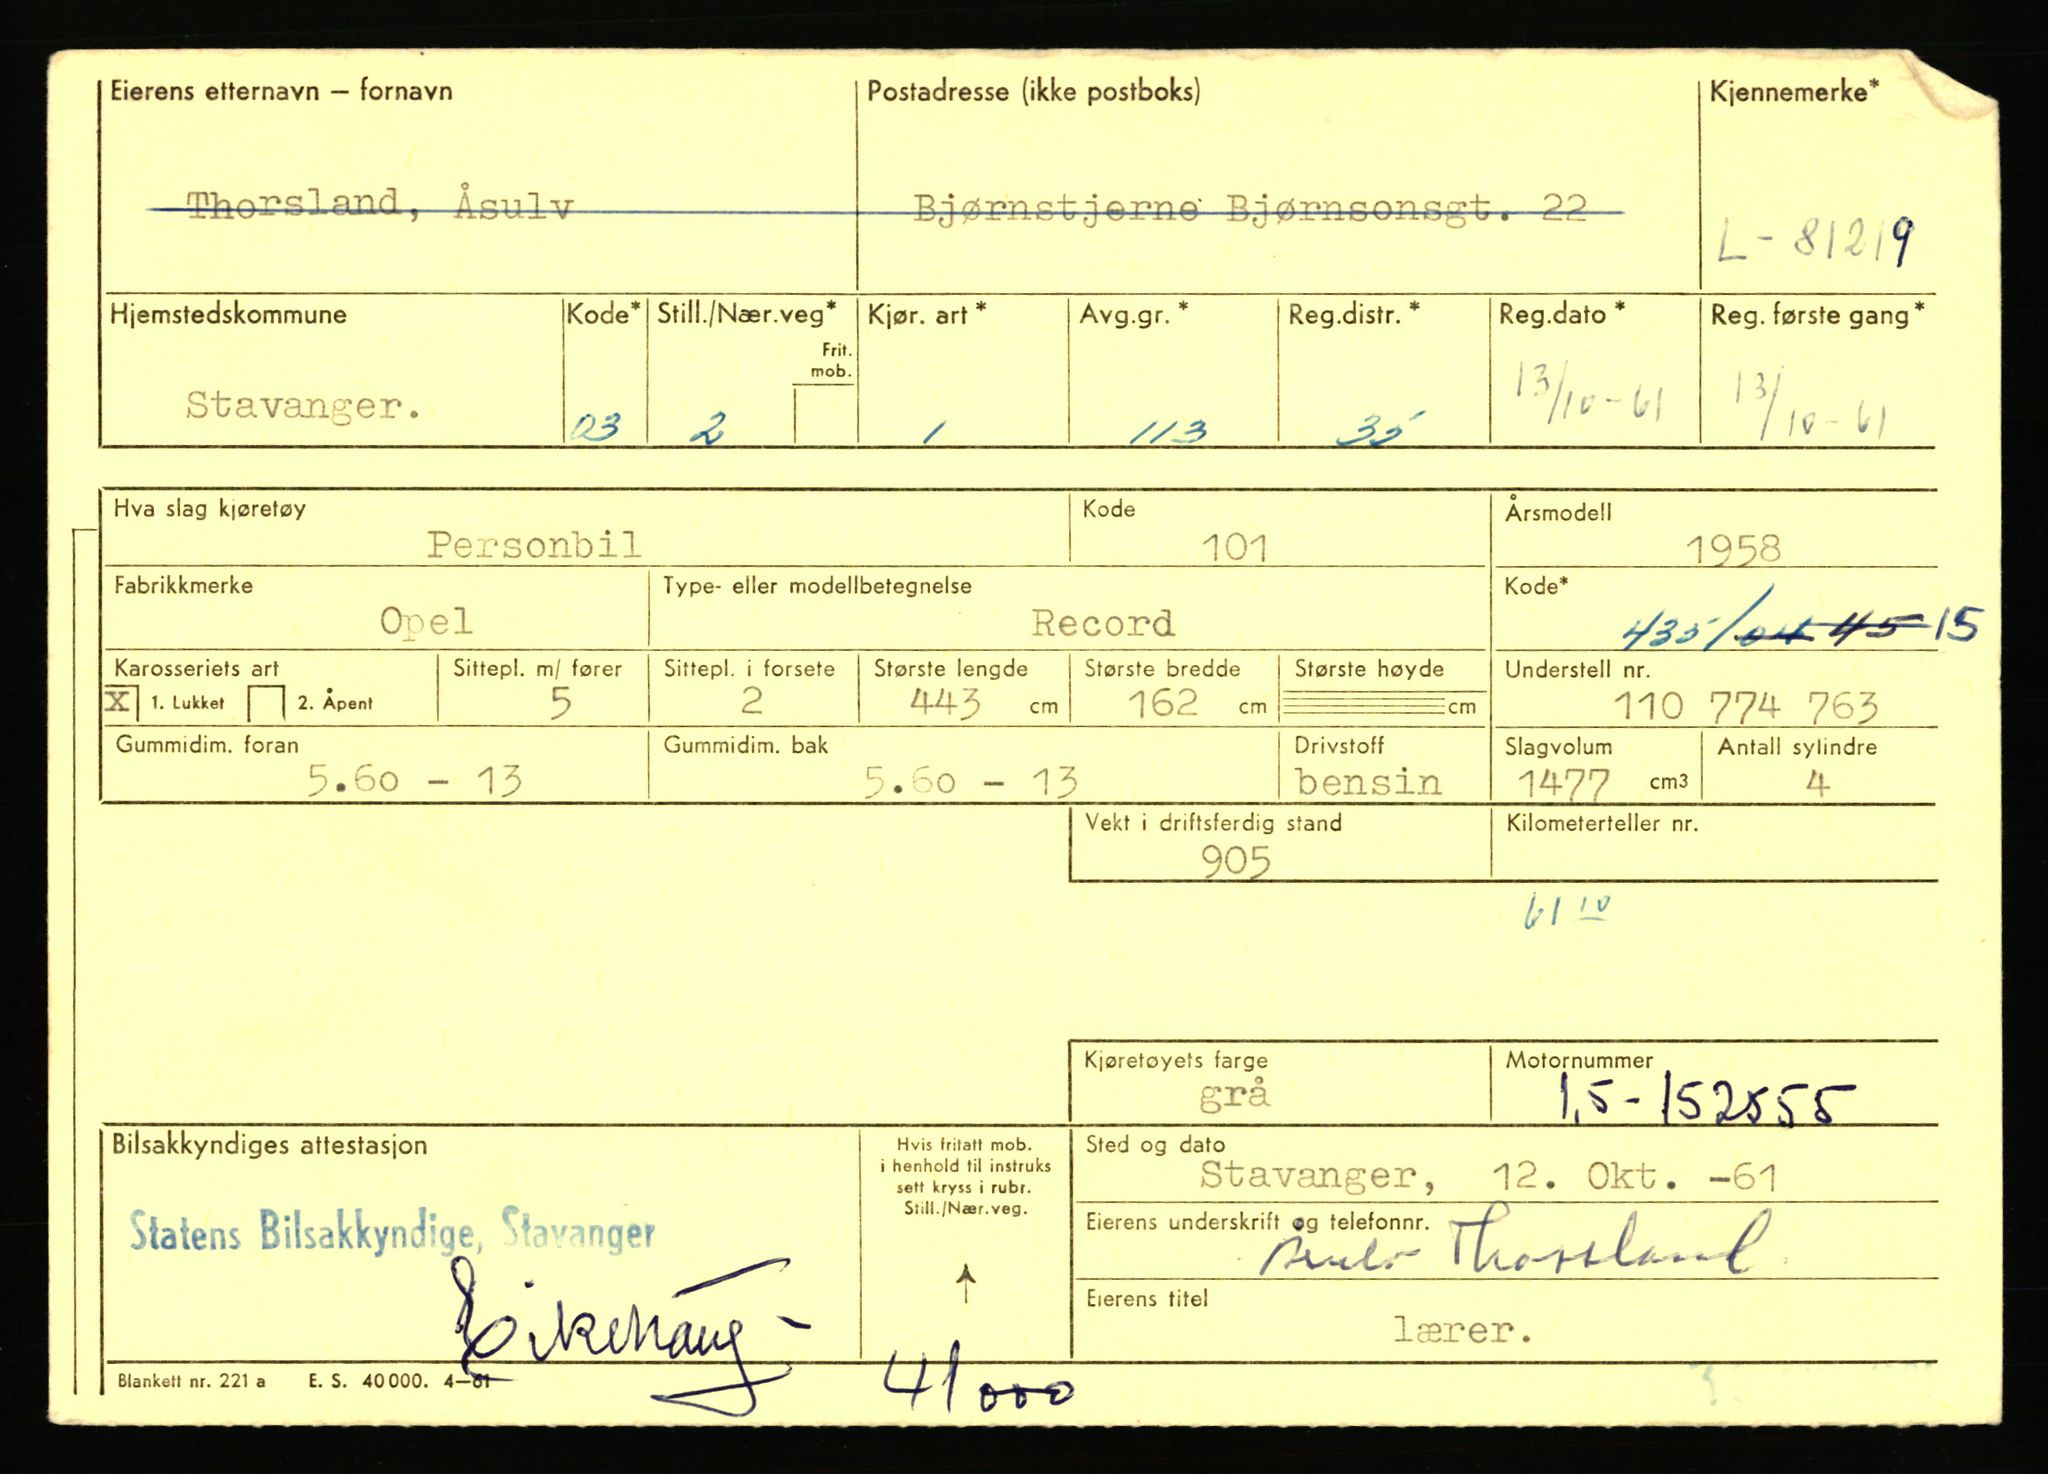 Eierens etternavn – fornavn Postadresse (ikke postboks) Kjennemerke*
Thorsland, Åsulv Bjørnstjerne Bjørnsonsgt. 22
L - 81219
Hjemstedskommune Kode* Still./Nær.veg* Kjør. art* Avg.gr.* Reg.distr.* Reg.dato* Reg. første gang*
Frit.
mob.
Stavanger. 03 2 1 113 35 13/10-61 13/10-61
Hva slag kjøretøy Kode Årsmodell
Personbil 101 1958
Fabrikkmerke Type- eller modellbetegnelse Kode*
Opel Record 435/04 45 15
Karosseriets art Sittepl. m/ fører Sittepl. i forsete Største lengde Største bredde Største høyde Understell nr.
X 1. Lukket 2. Åpent 5 2 443 cm 162 cm cm 110 774 763
Gummidim. foran Gummidim. bak Drivstoff Slagvolum Antall sylindre
5.60 - 13 5.60 - 13 bensin 1477 cm3 4
Vekt i driftsferdig stand Kilometerteller nr.
905
61 10
Kjøretøyets farge Motornummer
grå 1,5-152555
Bilsakkyndiges attestasjon Hvis fritatt mob. Sted og dato
i henhold til instruks
sett kryss i rubr.
Still./Nær.veg.
Stavanger, 12. Okt. -61
Statens Bilsakkyndige, Stavanger
Eierens underskrift og telefonnr.
Thorsland
Eierens titel
lærer.
Blankett nr. 221 a E. S. 40 000. 4–61
41000